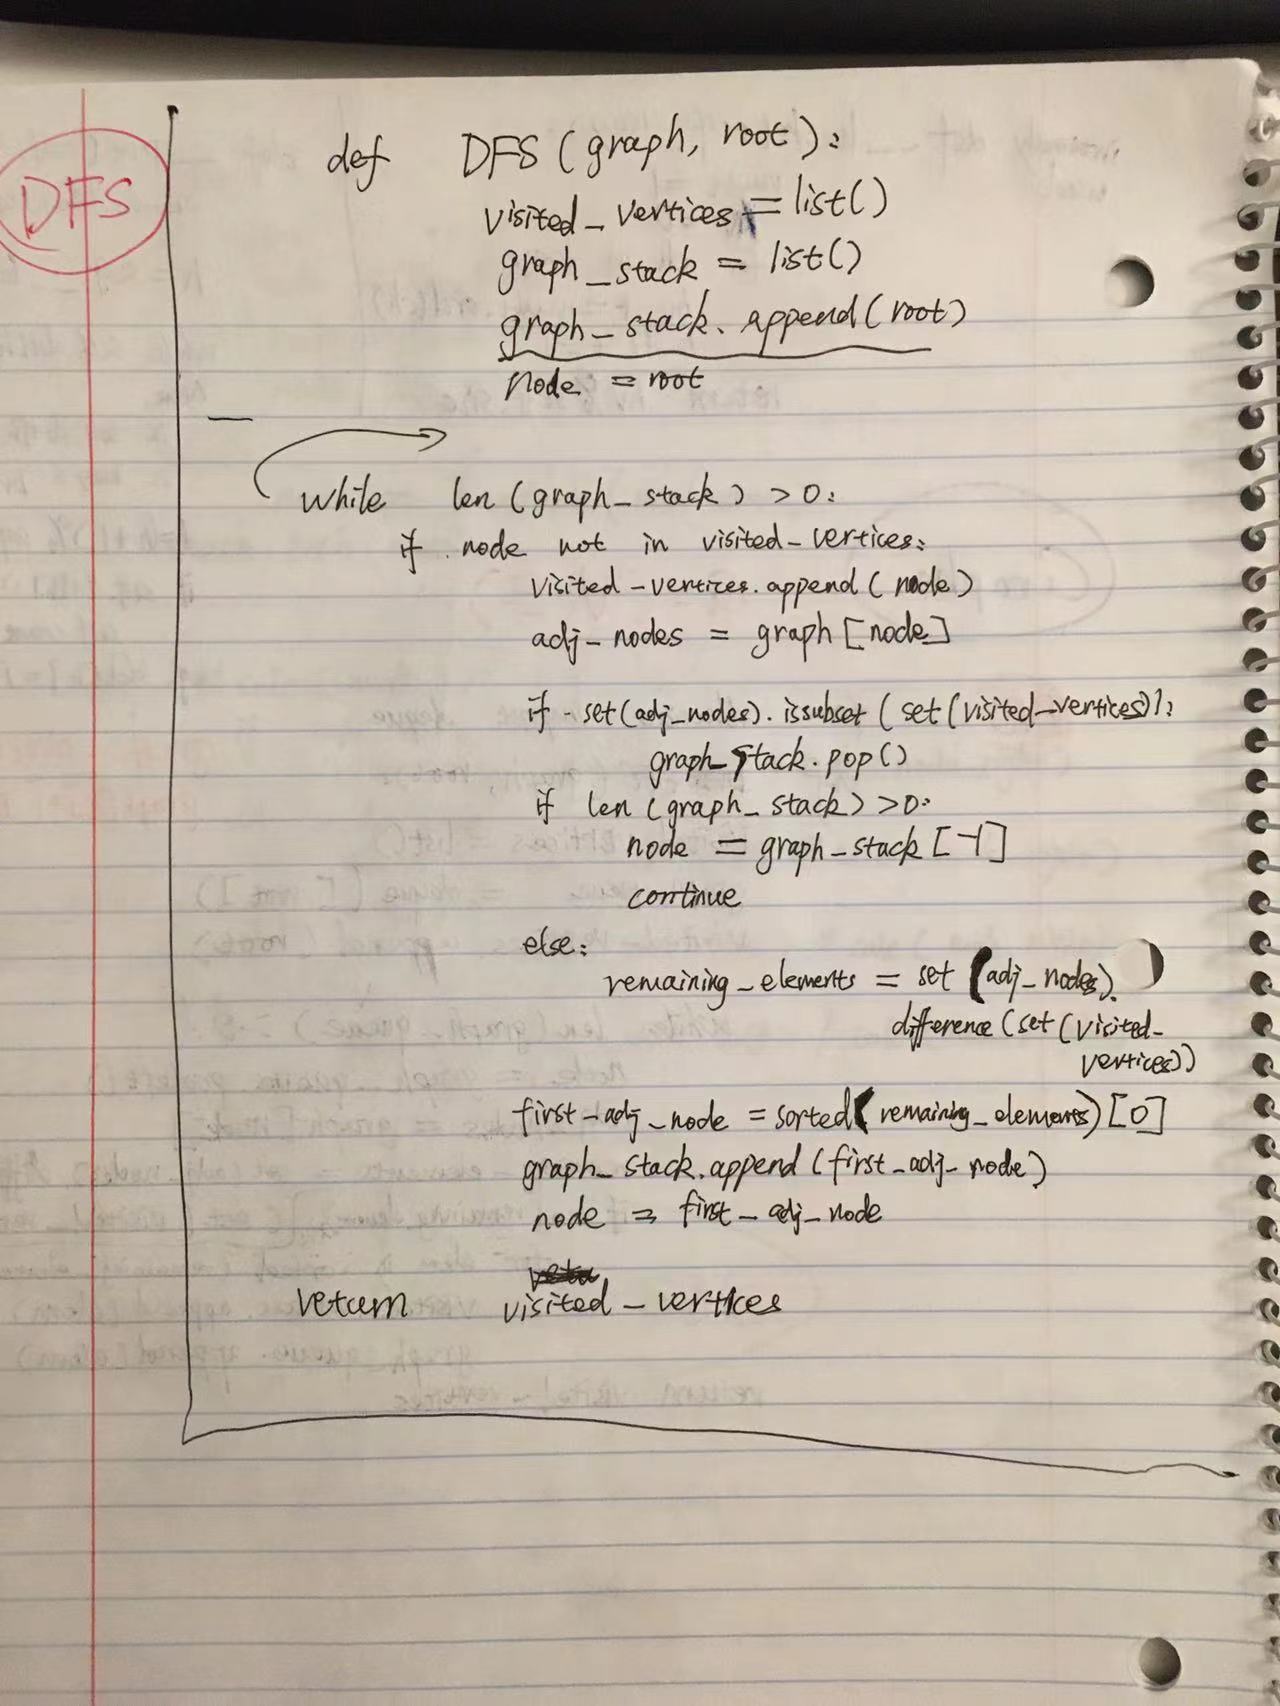 DFS
def DFS (graph, root):
visited_vertices = list()
graph_stack = list()
graph_stack.append(root)
node = root
while len (graph_stack) >0:
if node not in visited_vertices:
visited_vertices.append(node)
adj_nodes = graph[node]
if set(adj_nodes).issubset(set(visited_vertices)):
graph_stack.pop()
if len (graph_stack) >0:
node = graph_stack[-1]
continue
else:
remaining_elements = set (adj_nodes).
difference (set (visited_
vertices))
first_adj_node = sorted(remaining_elements)[0]
graph_stack.append(first_adj_node)
node = first_adj_node
return visited_vertices